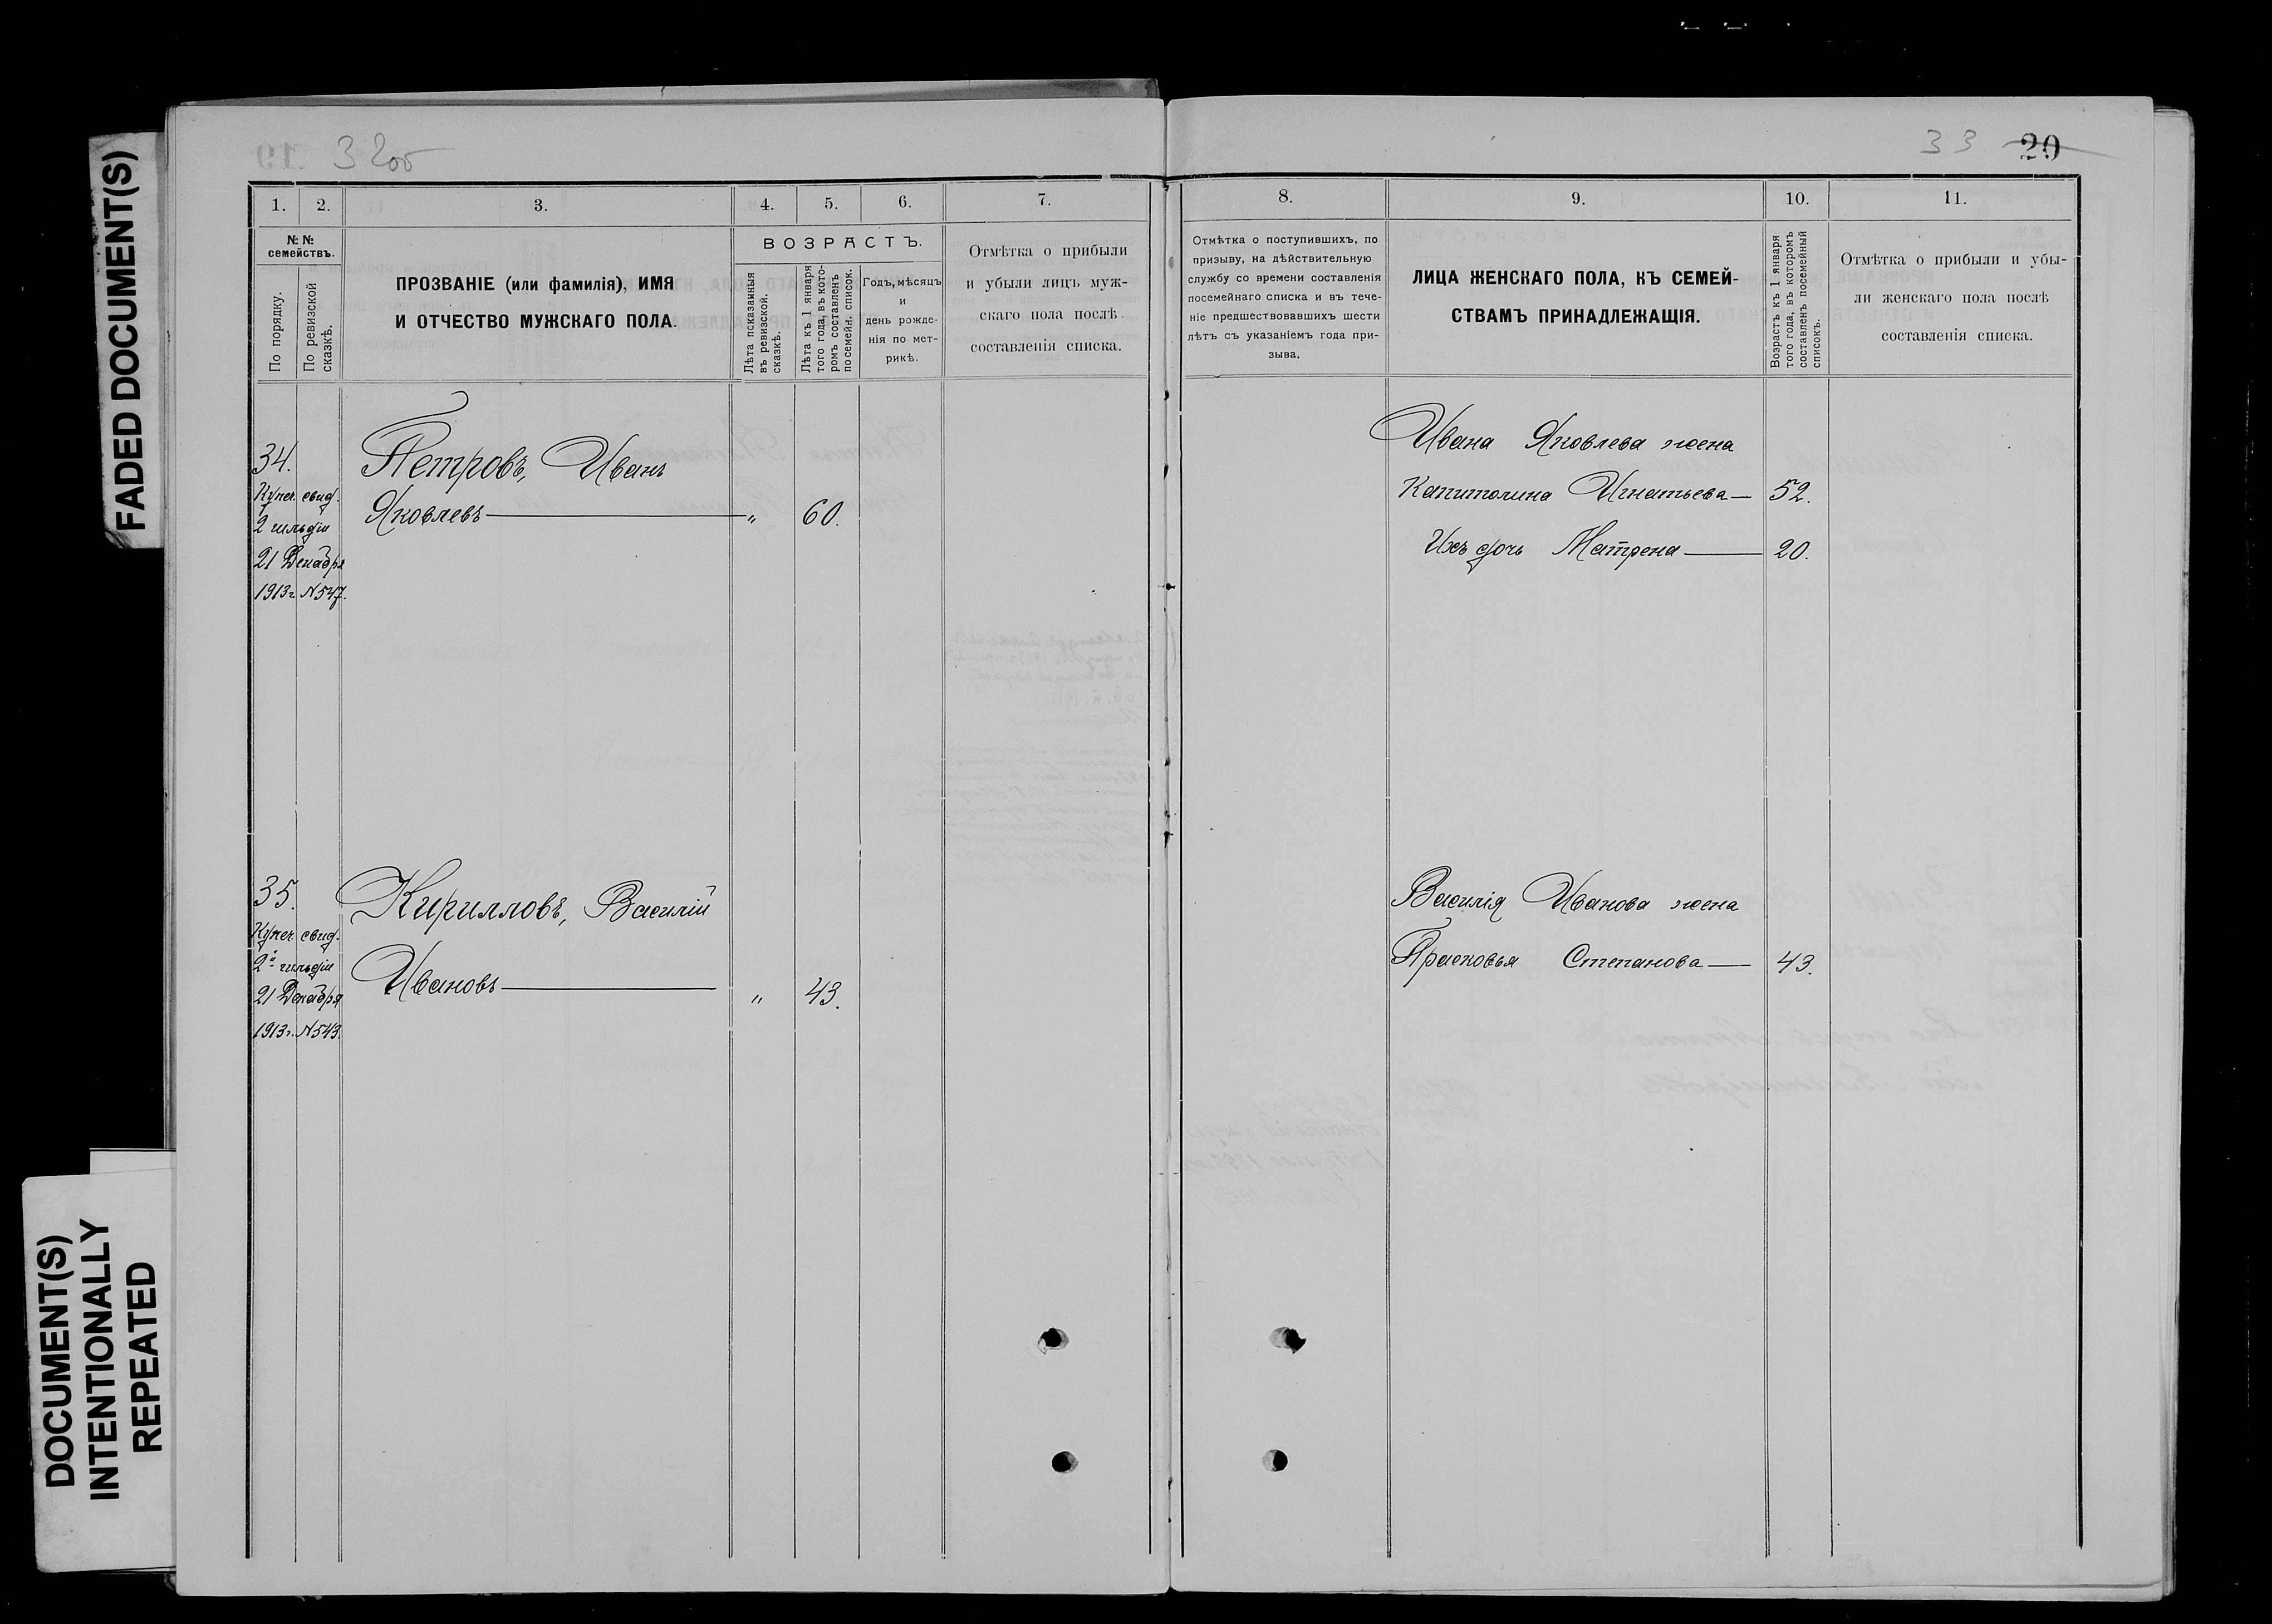 FADED DOCUMENT(S)
DOCUMENT(S)
INTENTIONALLY
REPEATED
32об
33 20
1. 2. 3. 4. 5. 6. 7.
№ №
семействъ.
По порядку.
По ревизской
сказкѣ.
ПРОЗВАНІЕ (или фамилія), ИМЯ
И ОТЧЕСТВО МУЖСКАГО ПОЛА.
ВОЗРАСТЪ.
Лѣта показамныя
въ ревизской.
сказкѣ.
Лѣта къ 1 января
того года, въ кото-
ромъ составленъ
посемейн. список.
Годъ, мѣсяцъ
и
день рожде-
нія по мет-
рикѣ.
Отмѣтка о прибыли
и убыли лицъ муж-
скаго пола послѣ
составленія списка.
34.
Купеч. свид.
2 гильдіи
21 Декабря
1913 г. N 547.
Петровъ, Иванъ
Яковлевъ — „ 60.
35.
Купеч. свид.
2й гильдіи
21 Декабря
1913 г. N 543.
Кирилловъ, Василій
Ивановъ — „ 43.
8. 9. 10. 11.
Отмѣтка о поступившихъ, по
призыву, на дѣйствительную
службу со времени составленія
посемейнаго списка и въ тече-
ніе предшествовавшихъ шести
лѣтъ съ указаніемъ года при-
зыва.
ЛИЦА ЖЕНСКАГО ПОЛА, КЪ СЕМЕЙ-
СТВАМЪ ПРИНАДЛЕЖАЩІЯ.
Возрастъ къ 1 января
того года, въ которомъ
составленъ посемейный
списокъ.
Отмѣтка о прибыли и убы-
ли женскаго пола послѣ
составленія списка.
Ивана Яковлева жена
Капитолина Игнатьева — 52.
Ихъ дочь Матрена — 20.
Василія Иванова жена
Прасковья Степанова — 43.